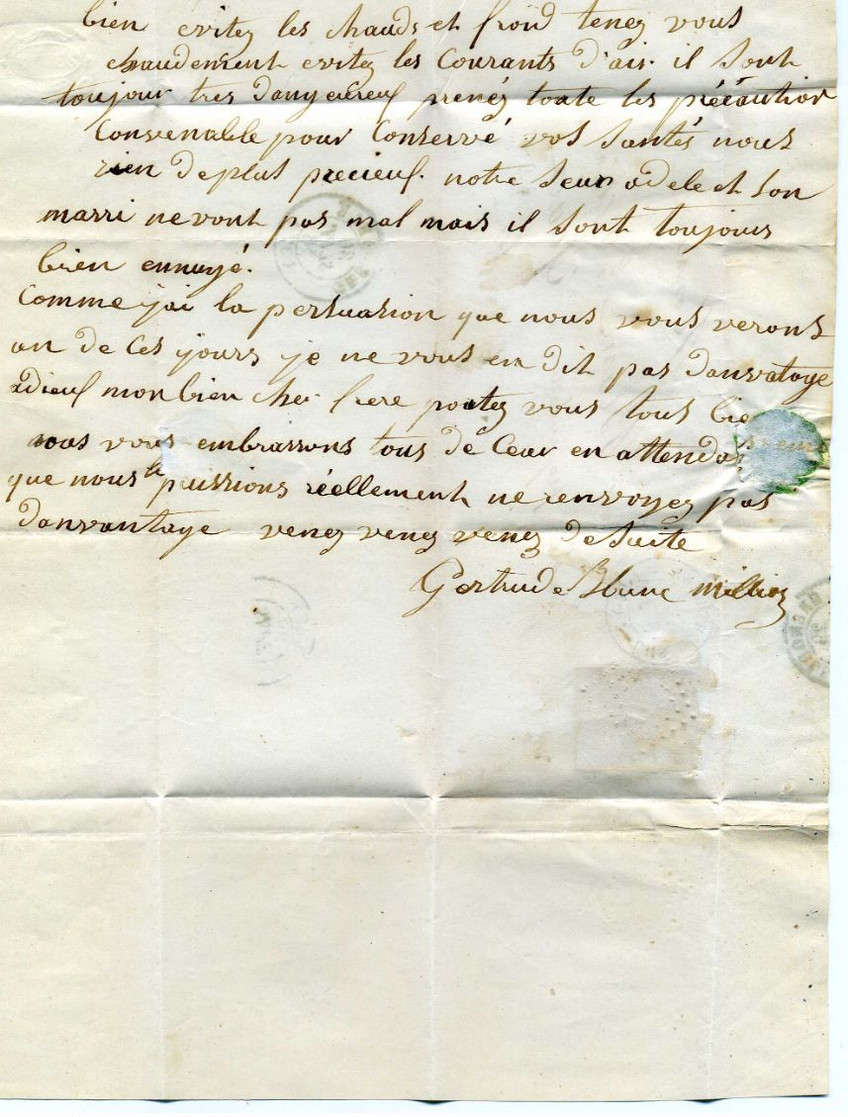 bien evitez les chauds et froid tenez vous
chaudement evitez les Courants d'air. il sont
toujour tres dangereuf prenés toute les précaution
Convenable pour Conservé vos santés nous
rien de plus precieuf. notre seur adele et son
marri ne vont pas mal mais il sont toujours
bien ennuyé.
Comme j'ai la persuasion que nous vous verons
un de ces jours je ne vous en dit pas danvatage
adieuf mon bien cher frere portez vous tous bien
nous vous embrassons tous de Ceur en attendant
que nous le puissions réellement ne renvoyez pas
danvantage venez venez venez de suite
Gertrude Blanc Millioz